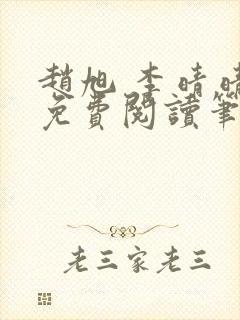 趙旭 李晴晴
免費閱讀筆
老三家老三